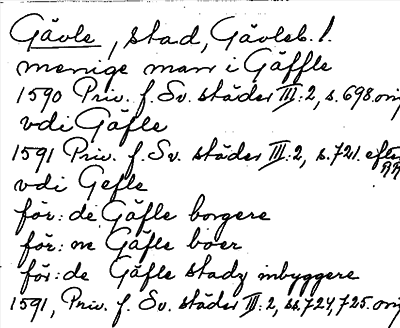 Gävle, stad, Gävleb. l.
menige man i Gäffle
1590 Priv. f. Sv. städer III:2, s. 698. orig
vdi Gäfle
1591 Priv. f. Sv. städer III:2, s. 721. efter
vdi Gefle
för: de Gäfle borgere
för: ne Gäfle boer
för: de Gäfle stadz inbyggere
1591, Priv. f. Sv. städer III:2, ss. 724, 725. orig